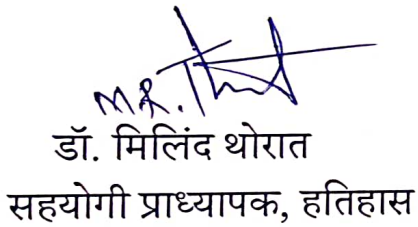 डॉ. मिलिंद थोरात
सहयोगी प्राध्यापक, हतिहास